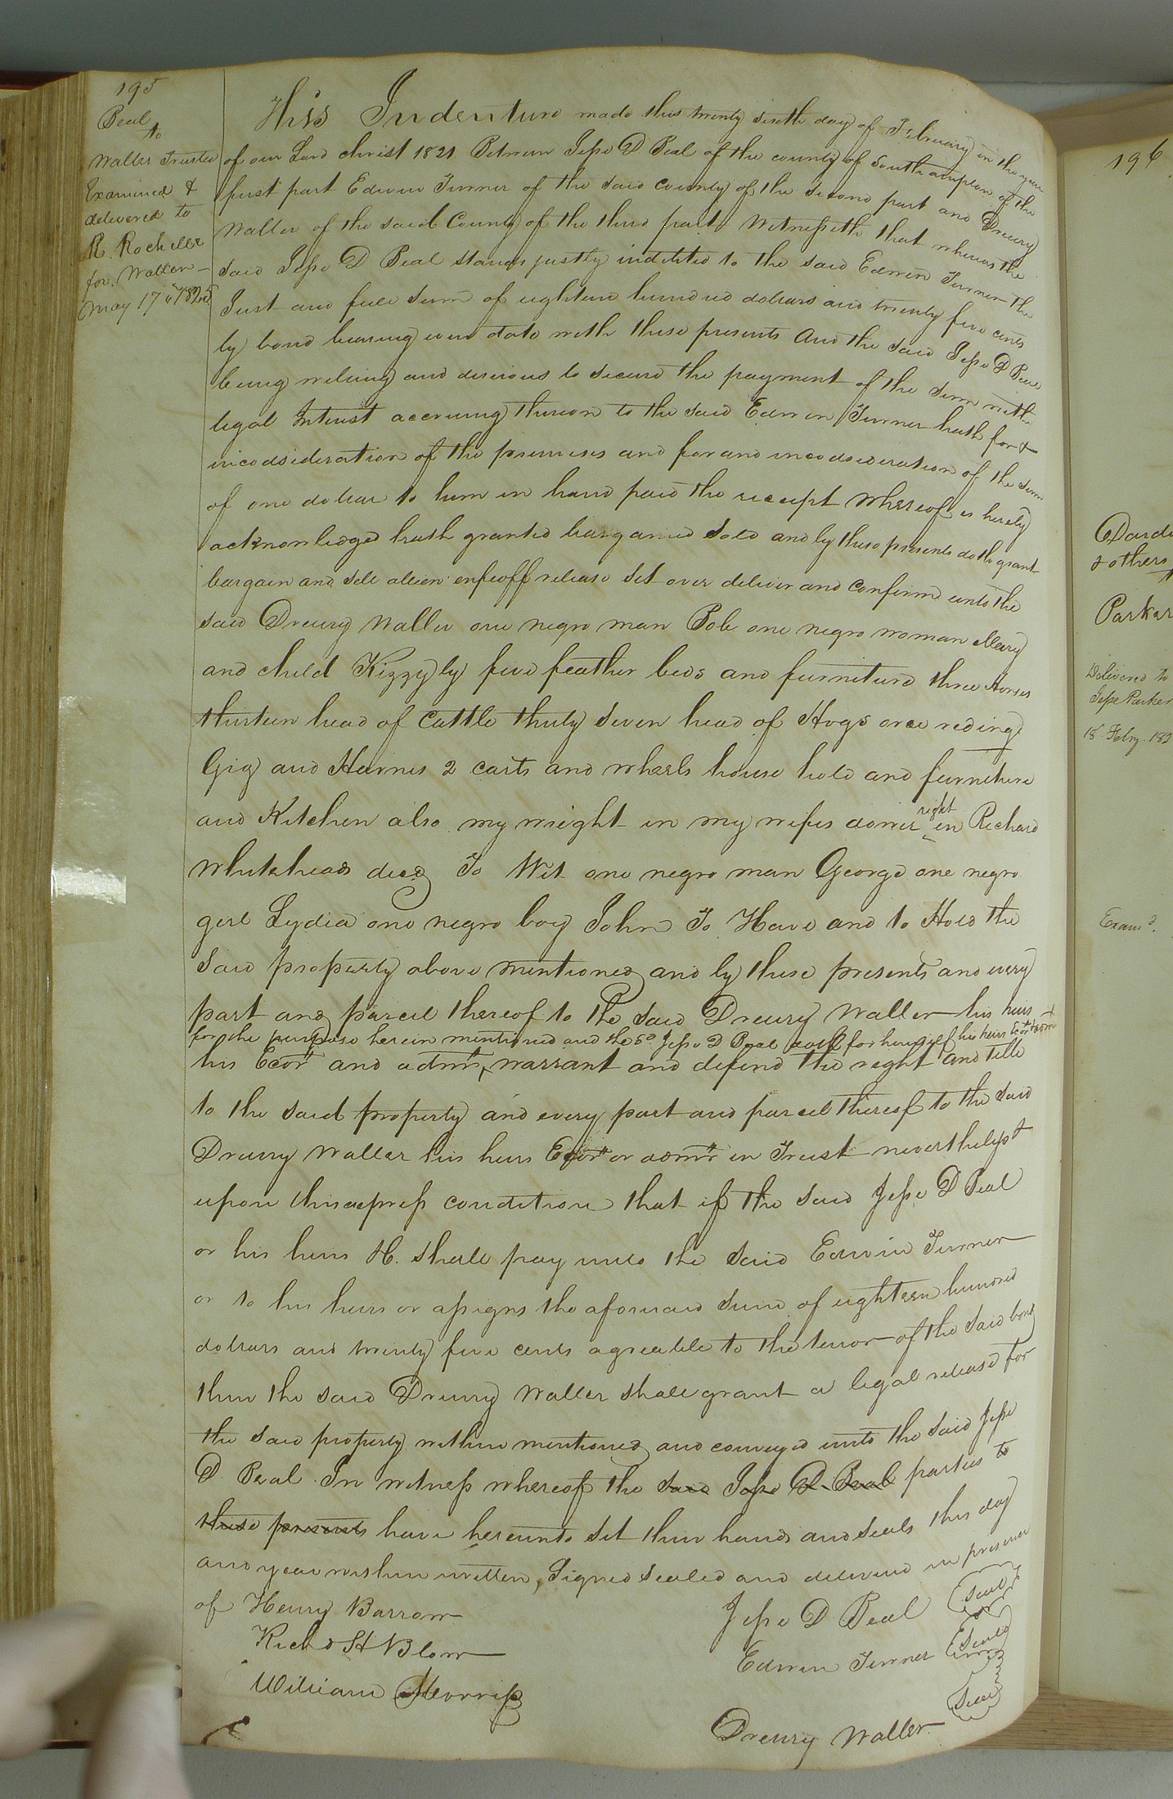 195
Peal
to
Waller Trustee
Examined &
delivered to
R. Rochelle
for Waller
May 17th
This Indenture made this twenty sixth day of February in the year
of our Lord Christ 1821 Between Jesse D Peal of the county of Southampton of the
first part Edwin Turner of the said County of the Second part and Drewry
Waller of the said County of the third part Witnesseth that whereas the
said Jesse D Peal stands justly indebted to the said Edwin Turner the
Just and full Sum of eighteen hundred dollars and twenty five cents
by bond bearing even date with these presents And the said Jesse D Peal
being willing and desirous to secure the payment of the sum with
legal Interest accruing thereon to the said Edwin Turner hath for &
in consideration of the premises and for and in consideration of the sum
of one dollar to him in hand paid the receipt whereof is hereby
acknowledged hath granted bargained Sold and by these presents doth grant
bargain and sell alien enfeoff release set over deliver and confirm unto the
said Drewry Waller one negro man Bob one negro woman Mary
and child Kizzy by five feather beds and furniture three Horses
thirteen head of Cattle thirty Seven head of Hogs one reding
Gig and Harnes 2 carts and wheels house hold and furniture
and Kitchen also my wright in my wifes dower right in Richard
Whitehead decd To Wit one negro man George one negro
girl Lydia one negro boy John To Have and to Hold the
said property above mentioned and by these presents and every
part and parcel thereof to the said Drewry Waller his heirs
for the purpose herein mentioned and the sd. Jesse D Peal doth for himself his heirs
his Ecors and admrs warrant and defend the right and title
to the said property and every part and parcel thereof to the said
Drewry Waller his heirs Ecors or admrs in Trust nevertheless
upon this express condition that if the said Jesse D Peal
or his heirs H. shall pay unto the said Edwin Turner
or to his heirs or assigns the aforesaid Sum of eighteen hundred
dollars and twenty five cents agreeable to the tenor of the said bond
then the said Drewry Waller shall grant a legal release for
the said property within mentioned and conveyed unto the said Jesse
D Peal In witness whereof the said Jesse D. Peal parties to
these presents have hereunto set their hands and seals this day
and year within written, Signed Sealed and delivered in presence
of Henry Barrow
Richd H Blow
William Morriss
Jesse D Peal Seal
Edwin Turner Seal
Drewry Waller Seal
196
& others
Parker
Delivered to
Jesse Parker
18 Feby.
Examd.